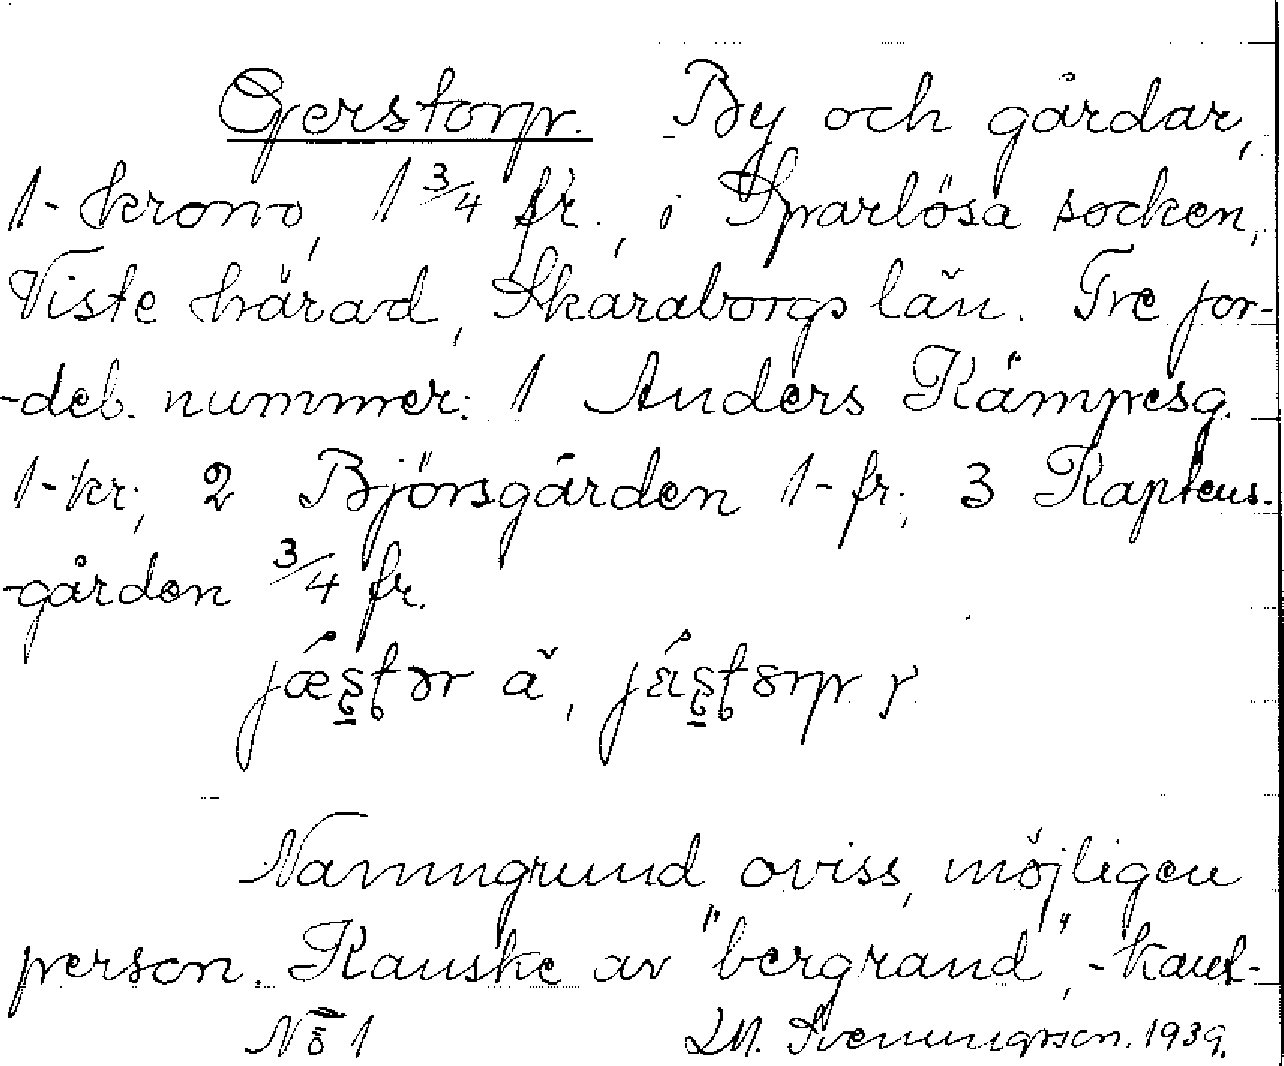 Gerstorp. By och gårdar,
1- krono, 1 3/4 fr., i Sparlösa socken,
Viste härad, Skaraborgs län. Tre jor-
-deb. nummer: 1 Anders Kämpesg.
1- kr; 2 Björsgården 1- fr; 3 Kaptens-
-gården 3/4 fr.
Namngrund oviss, möjligen
person. Kanske av "bergrand", -kant-
No 1 Svenungsson. 1939.